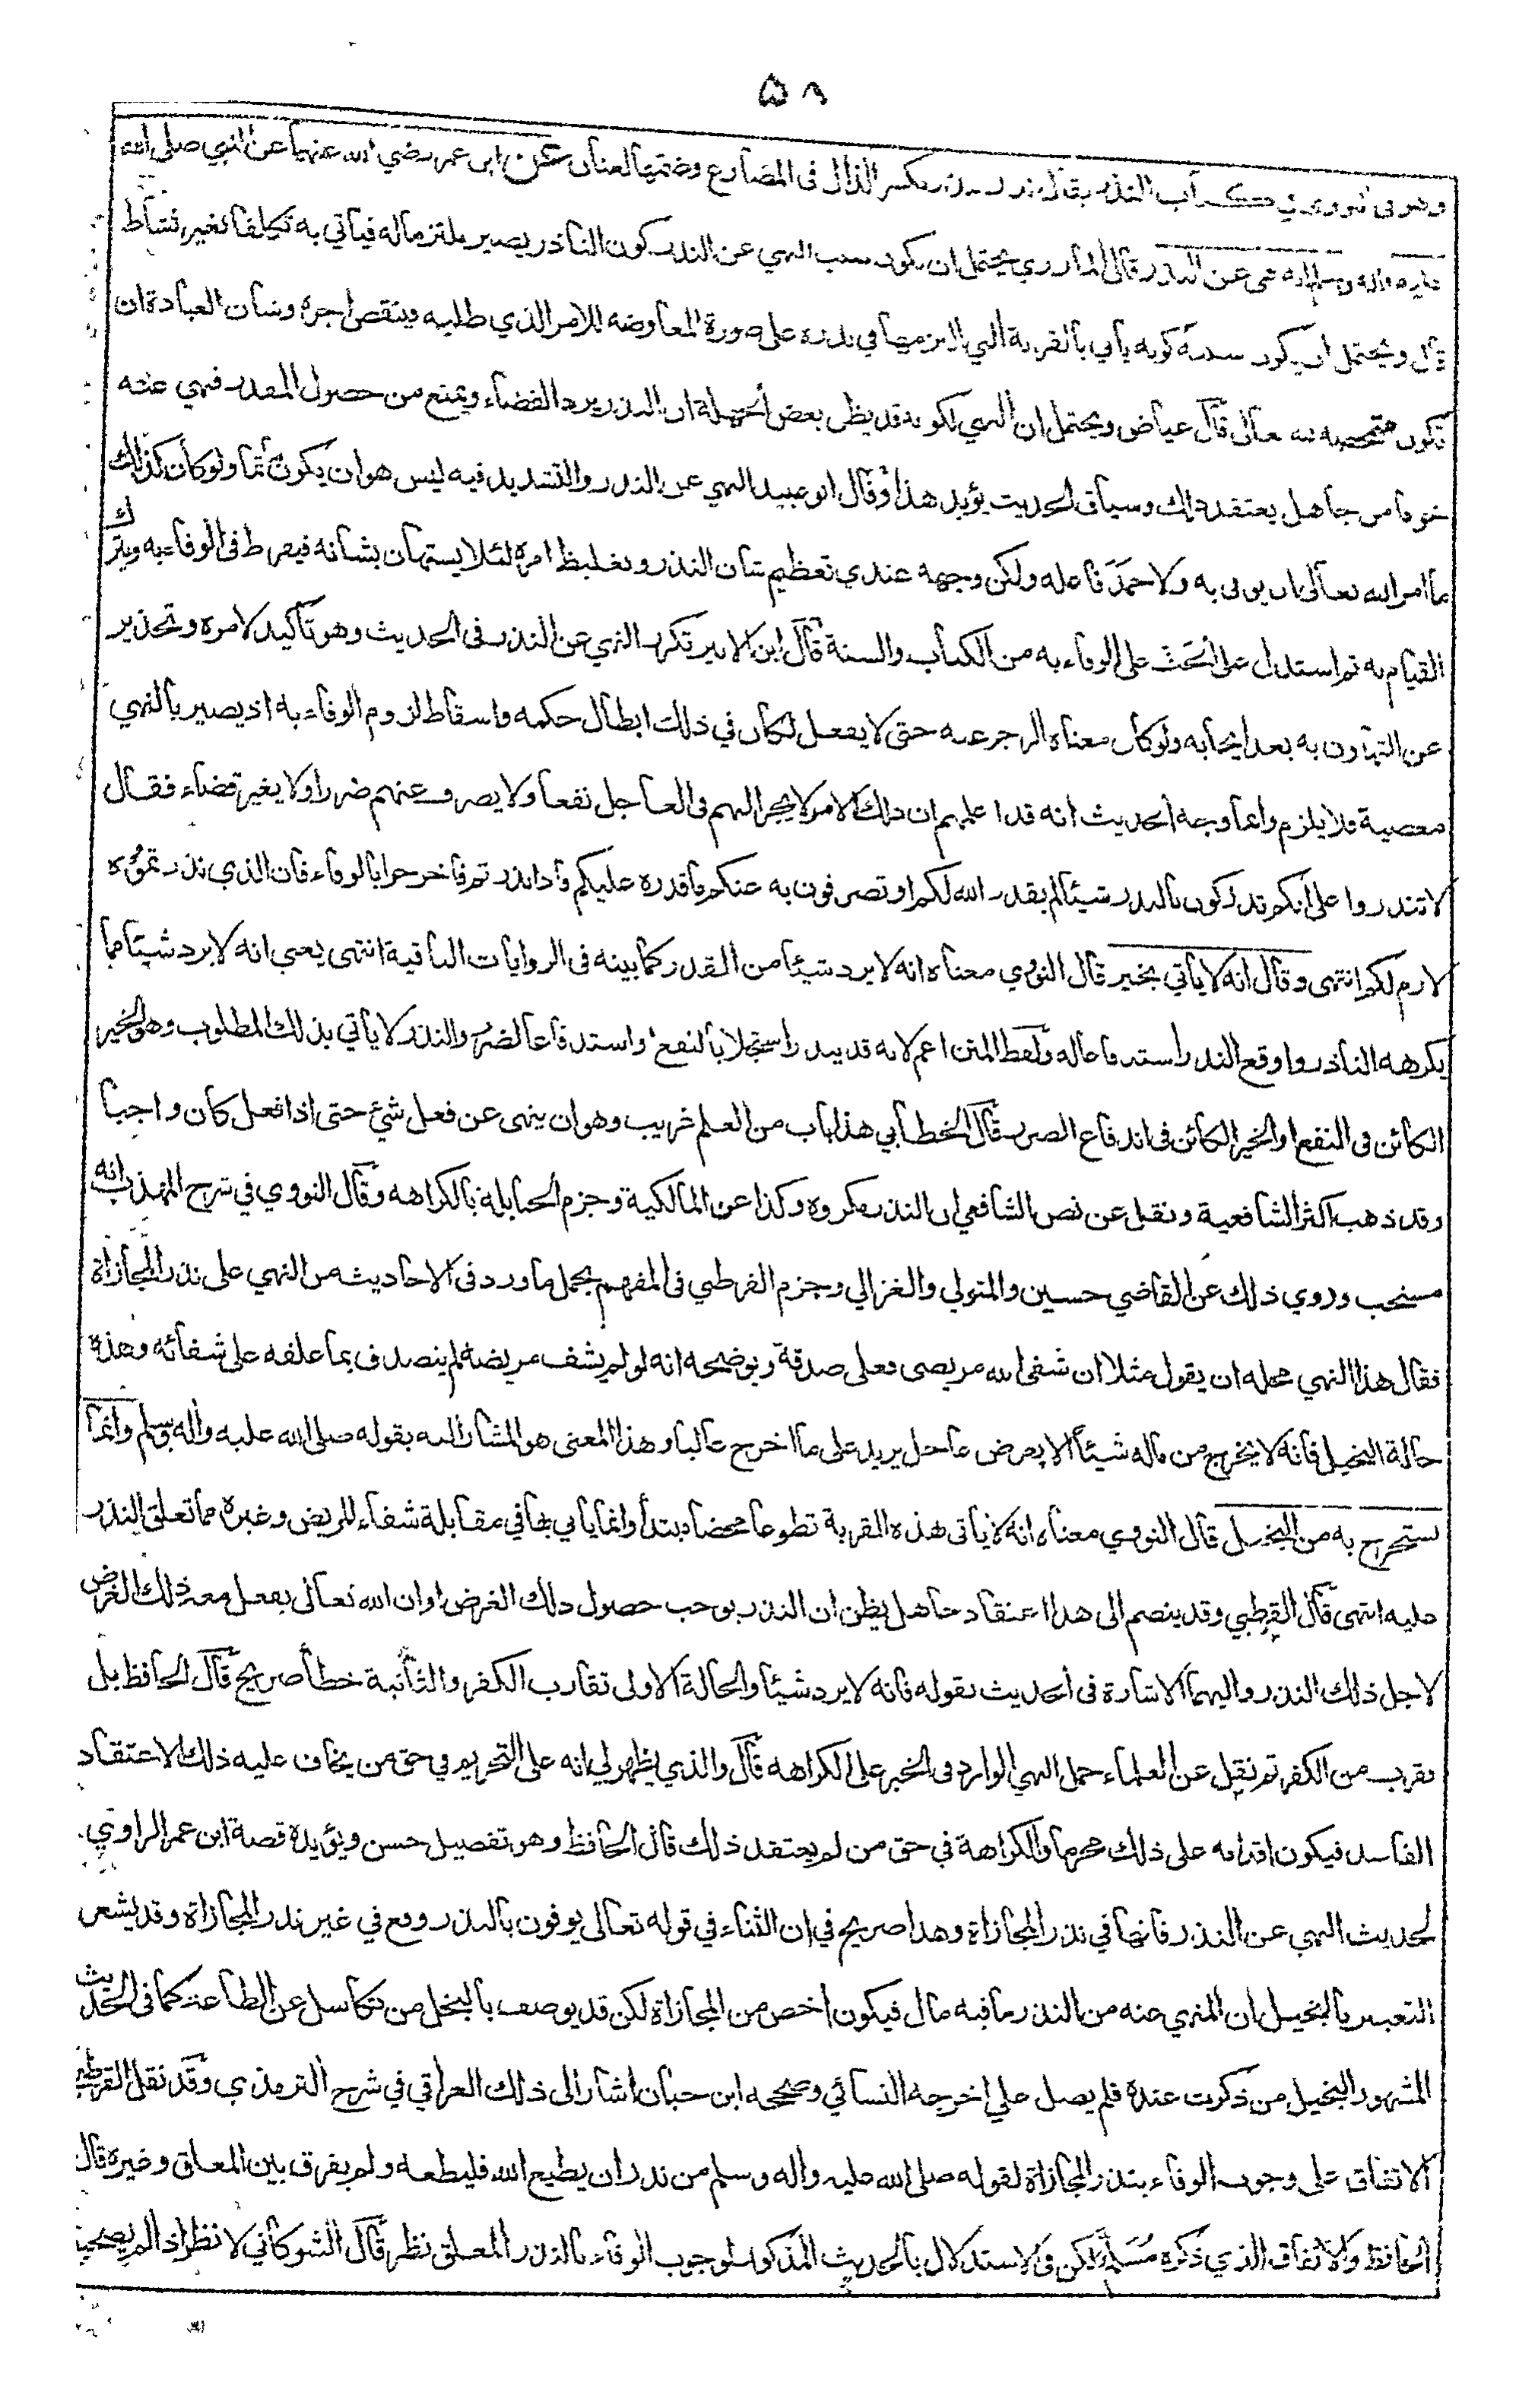 ٥٨
وهو في النووي في كتاب النذر يقال نذر ينذر بكسر الذال في المضارع وضمها لغتان عن ابن عمر رضي الله عنهما عن النبي صلى الله
عليه وآله وسلم انه نهى عن النذر قال المازري يحتمل ان يكون سبب النهي عن النذر كون الناذر يصير ملتزما له فيأتي به تكلفا بغير نشاط
قال ويحتمل ان يكون سببه كونه يأتي بالقربة التي التزمها في نذره على صورة المعاوضة للامر الذي طلبه فينقص اجره وشأن العبادة ان
تكون متمحضة لله تعالى قال عياض ويحتمل ان النهي لكونه قد يظن بعض الجهلة ان النذر يرد القضاء ويمنع من حصول المقدر فنهي عنه
خوفا من جاهل يعتقد ذلك وسياق الحديث يؤيد هذا وقال ابو عبيد النهي عن النذر والتشديد فيه ليس هو ان يكون مأثما ولو كان كذلك
ما امر الله تعالى ان يوفى به ولا حمد فاعله ولكن وجهه عندي تعظيم شأن النذر وتغليظ امره لئلا يستهان بشأنه فيفرط في الوفاء به ويترك
القيام به ثم استدل على الحث على الوفاء به من الكتاب والسنة قال ابن الاثير تكرر النهي عن النذر في الحديث وهو تأكيد لامره وتحذير
عن التهاون به بعد ايجابه ولو كان معناه الزجر عنه حتى لا يفعل لكان في ذلك ابطال حكمه واسقاط لزوم الوفاء به اذ يصير بالنهي
معصية فلا يلزم وانما وجه الحديث انه قد اعلمهم ان ذلك الامر لا يجر اليهم في العاجل نفعا ولا يصرف عنهم ضررا ولا يغير قضاء فقال
لا تنذروا على انكم تدركون بالنذر شيئا لم يقدر الله لكم او تصرفون به عنكم ما قدره عليكم فاذا نذرتم فاخرجوا بالوفاء فان الذي نذرتموه
لازم لكم انتهى وقال انه لا يأتي بخير قال النووي معناه انه لا يرد شيئا من القدر كما بينه في الروايات الباقية انتهى يعني انه لا يرد شيئا مما
يكرهه الناذر واوقع النذر استدفاعا له ولفظ المتن اعم لانه قد ينذر استجلابا لنفع او استدفاعا لضر والنذر لا يأتي بذلك المطلوب وهو الخير
الكائن في النفع او الخير الكائن في اندفاع الضرر قال الخطابي هذا باب من العلم غريب وهو ان ينهى عن فعل شئ حتى اذا فعل كان واجبا
وقد ذهب اكثر الشافعية ونقل عن نص الشافعي ان النذر مكروه وكذا عن المالكية وجزم الحنابلة بالكراهه وقال النووي في شرح المهذب انه
مستحب وروي ذلك عن القاضي حسين والمتولي والغزالي وجزم القرطبي في المفهم بحمل ما ورد في الاحاديث من النهي على نذر المجازاة
فقال هذا النهي محله ان يقول مثلا ان شفى الله مريضي فعلي صدقة ويوضحه انه لو لم يشف مريضه لم يتصدق بما علقه على شفائه وهذه
حالة البخيل فانه لا يخرج من ماله شيئا الا بعوض عاجل يزيد على ما اخرج غالبا وهذا المعنى هو المشار اليه بقوله صلى الله عليه وآله وسلم وانما
يستخرج به من البخيل قال النووي معناه انه لا يأتي هذه القربة تطوعا محضا مبتدأ وانما يأتي بها في مقابلة شفاء المريض وغيره مما تعلق النذر
عليه انتهى قال القرطبي وقد ينضم الى هذا اعتقاد جاهل يظن ان النذر يوجب حصول ذلك الغرض او ان الله تعالى يفعل معه ذلك الغرض
لاجل ذلك النذر واليهما الاشارة في الحديث بقوله فانه لا يرد شيئا والحالة الاولى تقارب الكفر والثانية خطأ صريح قال الحافظ بل
تقرب من الكفر ثم نقل عن العلماء حمل النهي الوارد في الخبر على الكراهه قال والذي يظهر لي انه على التحريم في حق من يخاف عليه ذلك الاعتقاد
الفاسد فيكون اقدامه على ذلك محرما والكراهة في حق من لم يعتقد ذلك قال الحافظ وهو تفصيل حسن ويؤيده قصة ابن عمر الراوي
لحديث النهي عن النذر فانها في نذر المجازاة وهذا صريح في ان الثناء في قوله تعالى يوفون بالنذر وقع في غير نذر المجازاة وقد يشعر
التعبير بالبخيل ان المنهي عنه من النذر ما فيه مال فيكون اخص من المجازاة لكن قد يوصف بالبخل من تكاسل عن الطاعة كما في الحديث
المشهور البخيل من ذكرت عنده فلم يصل علي اخرجه النسائي وصححه ابن حبان اشار الى ذلك العراقي في شرح الترمذي وقد نقل القرطبي
الاتفاق على وجوب الوفاء بنذر المجازاة لقوله صلى الله عليه وآله وسلم من نذر ان يطيع الله فليطعه ولم يفرق بين المعلق وغيره قال
الحافظ والاتفاق الذي ذكره مسلم لكن في الاستدلال بالحديث المذكور لوجوب الوفاء بالنذر المعلق نظر قال الشوكاني لا نظر اذا لم يصحبه